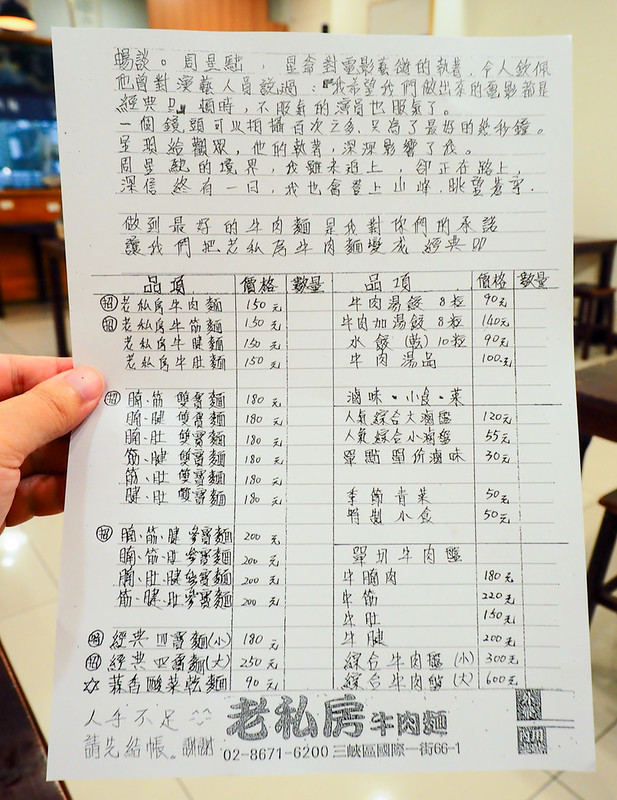 暢談。周星馳，星爺對電影藝術的執著，令人欽佩
他曾對演藝人員說過：『我希望我們做出來的電影都是
經典!!』頓時，不服氣的演員也服氣了。
一個鏡頭可以拍攝百次之多，只為了最好的幾秒鐘。
呈現給觀眾，他的執著，深深影響了我。
周星馳的境界，我難未追上，卻正在路上，
深信終有一日，我也會登上山峰，眺望寰宇．
做到最好的牛肉麵是我對你們的承諾
讓我們把老私房牛肉麵變成 經典!!!
品項 價格 數量
招 老私房牛肉麵 150元
招 老私房牛筋麵 150元
老私房牛腱麵 150元
老私房牛肚麵 150元
招 腩、筋 雙寶麵 180元
腩、腱 雙寶麵 180元
腩、肚 雙寶麵 180元
筋、腱 雙寶麵 180元
筋、肚 雙寶麵 180元
腱、肚 雙寶麵 180元
招 腩、筋、腱 參寶麵 200元
腩、筋、肚 參寶麵 200元
腩、肚、腱 參寶麵 200元
筋、腱、肚 參寶麵 200元
招 經典四寶麵(小) 180元
招 經典四寶麵(大) 250元
☆ 蒜香酸菜乾麵 90元
品項 價格 數量
牛肉湯餃 8粒 90元
牛肉加湯餃 8粒 140元
水餃(乾) 10粒 90元
牛肉湯品 100元
滷味・小食・菜
人氣綜合大滷盤 120元
人氣綜合小滷盤 55元
單點單份滷味 30元
季節青菜 50元
特製小食 50元
單切牛肉盤
牛腩肉 180元
牛筋 220元
牛肚 150元
牛腱 200元
綜合牛肉盤(小) 300元
綜合牛肉盤(大) 600元
人手不足
請先結帳。謝謝
老私房牛肉麵
02-8671-6200 三峽區國際一街66-1
外帶
內用